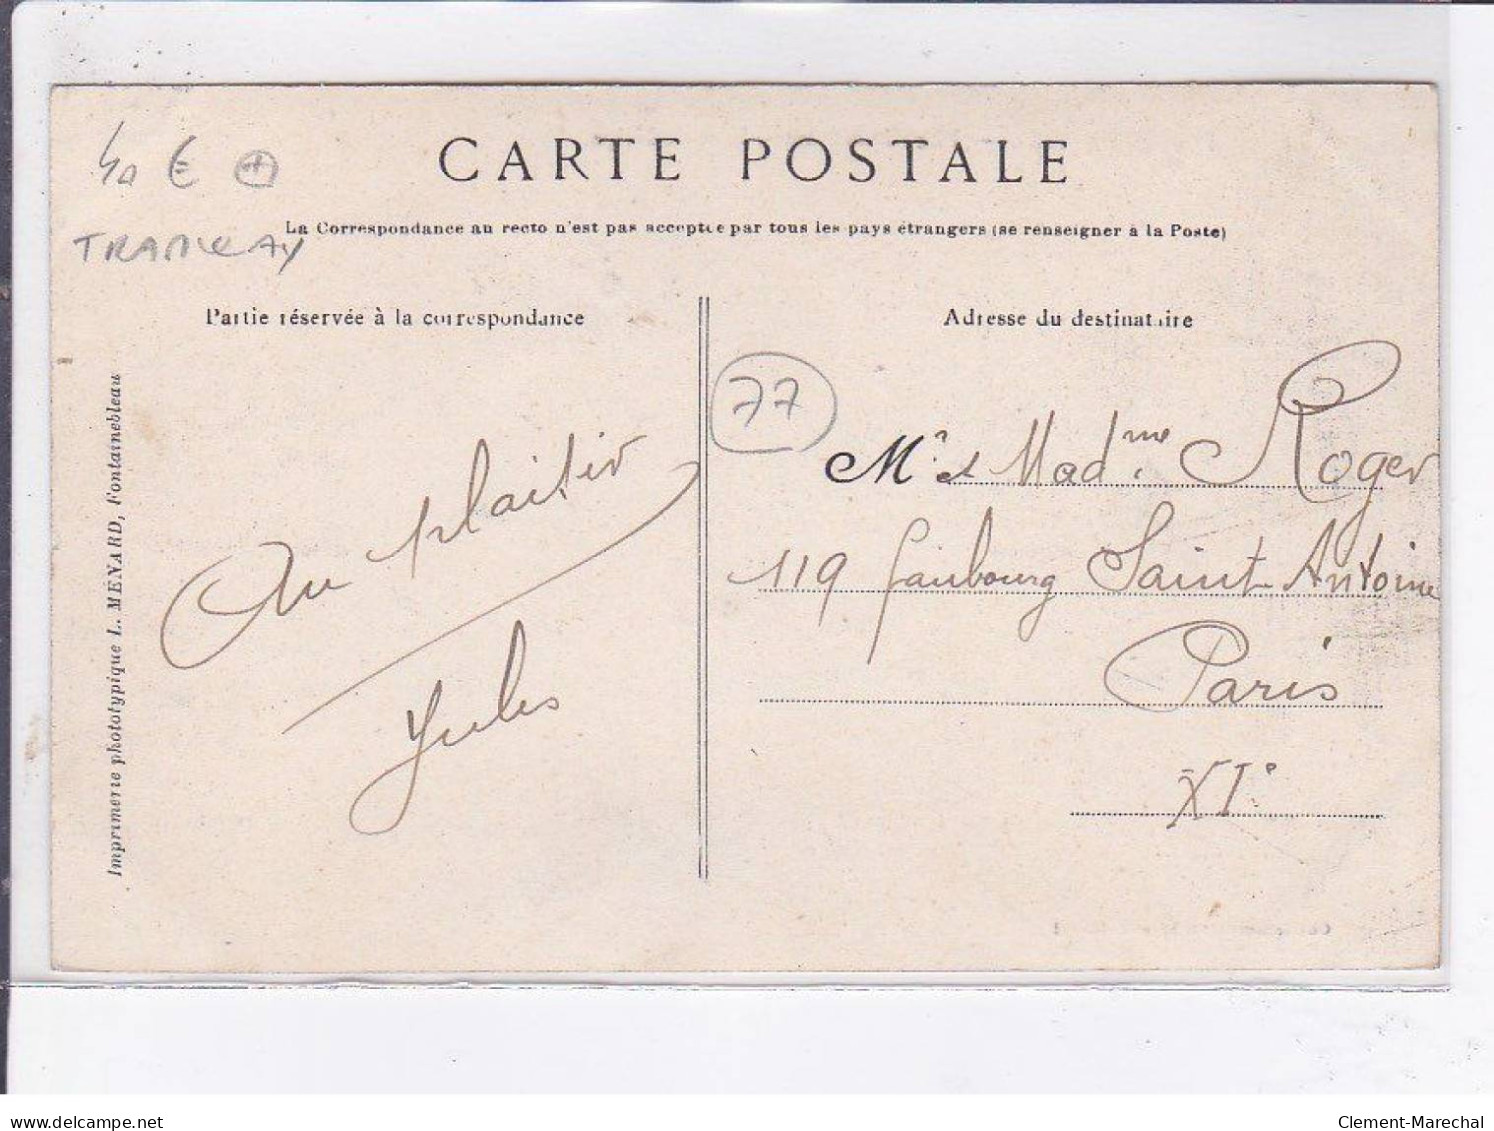 40 € +
TRAMWAY
CARTE POSTALE
La Correspondance au recto n'est pas acceptée par tous les pays étrangers (se renseigner à la Poste)
Partie réservée à la correspondance
Adresse du destinataire
Imprimerie phototypique L. MENARD, Fontainebleau
Au plaisir
Jules
77
Mr et Madme Roger
119 faubourg Saint-Antoine
Paris
XIe
delcampe.net
Clement-Marechal